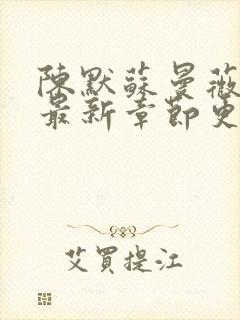 陳默蘇曼薇
最新章節更
艾買提江